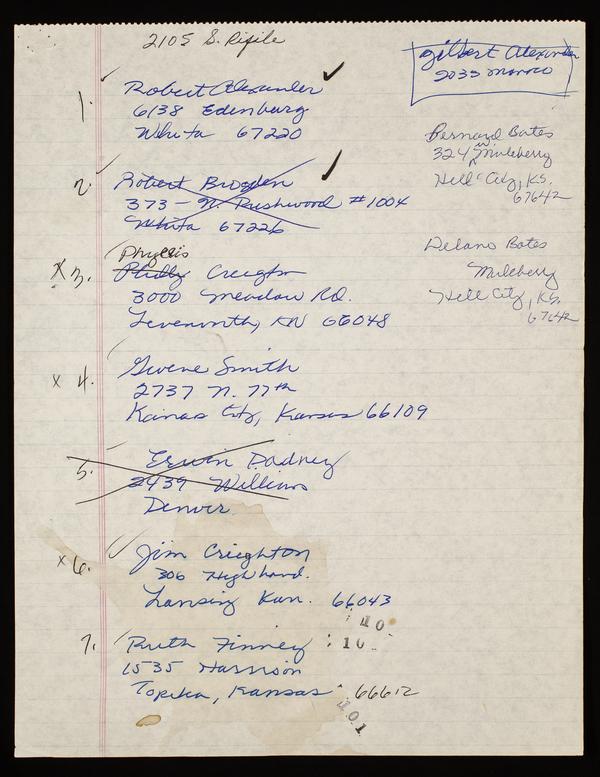 2105 S.
Gilbert Alexander
2033 Monaco
1. Robert Alexander
6138 Edenburg
Whita 67220
Bernard Bates
324 W Mulberry
Hill City, KS.
67642
2. Robert Brogden
373 - N. Rushwood #1004
Whita 67226
Delano Bates
Mulberry
Hill City, KS.
67642
Phyllis
X 3. Creighton
3000 Meadow Rd.
Levenworth, KN 66048
x 4. Gwene Smith
2737 N. 77th
Kansas City, Kansas 66109
5. Erwin Dadney
2439 Williams
Denver
x 6. Jim Creighton
306 Highland.
Lansing Kan. 66043
40
: 10
7. Ruth Finney
1535 Harrison
Topeka, Kansas 66612
401